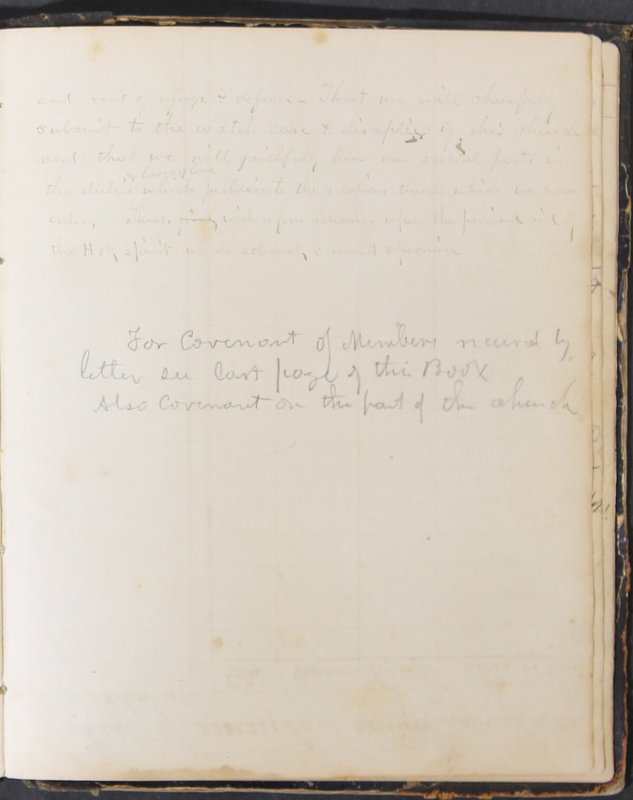 and that we will cheerfully
submit to the watch care & discipline of this church
and that we will faithfully our several parts in
the duties which pertain to the relations which we now
This with a firm reliance upon the promised aid of
the Holy Spirit we do solemnly covenant & promise
For Covenant of Members received by
letter see last page of this Book
Also Covenant on the part of the church